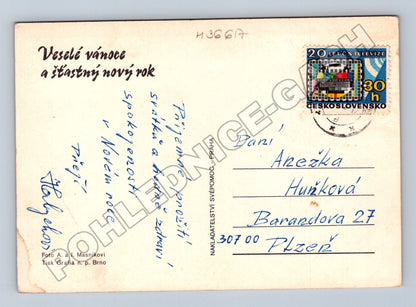 H36617
Veselé vánoce
a šťastný nový rok
Příjemné prožití
svátků a hodně zdraví
spokojenosti
v Novém roce
přejí
20 LET ČS. TELEVIZE
30 h
ČESKOSLOVENSKO
Paní
Anežka
Huňková
Barandova 27
307 00 Plzeň
NAKLADATELSTVÍ SVÉPOMOC - PRAHA
Foto A. a I. Masníkovi
Tisk Grafia n. p. Brno
POHLEDNICE-G.CZH